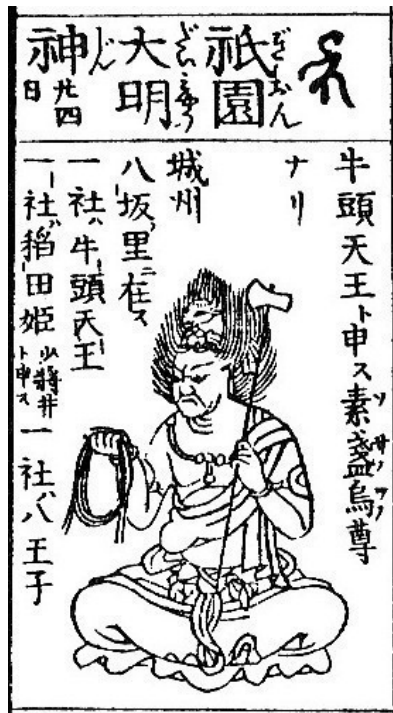 祇園大明神 廿四日
牛頭天王ト申ス素盞烏尊
ナリ
城州
八坂ノ里ニ在ス
一社ハ牛頭天王
一社ハ稲田姫少將井ト申ス一社ハ八王子